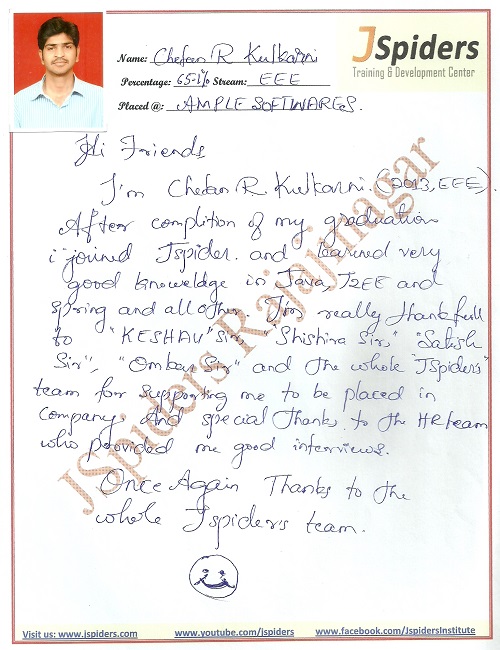 JSpiders
Training & Development Center
Name: Chetan R Kulkarni
Percentage: 65.1% Stream: EEE
Placed @: AMPLE SOFTWARES.
Hi Friends
I'm Chetan R Kulkarni. (2013, EEE).
After complition of my graduation
i joined Jspider. and learned very
good knowledge in Java, J2EE and
spring and all other. I'm really thankfull
to "KESHAV" sir, "Shishira Sir," "Satish
Sir", "Omkar Sir" and the whole "JSpiders"
team for supporting me to be placed in
company. And special thanks to the HR team
who provided me good interviews.
Once Again Thanks to the
whole Jspiders team.
JSpiders Rajajinagar
Visit us: www.jspiders.com www.youtube.com/jspiders www.facebook.com/JspidersInstitute